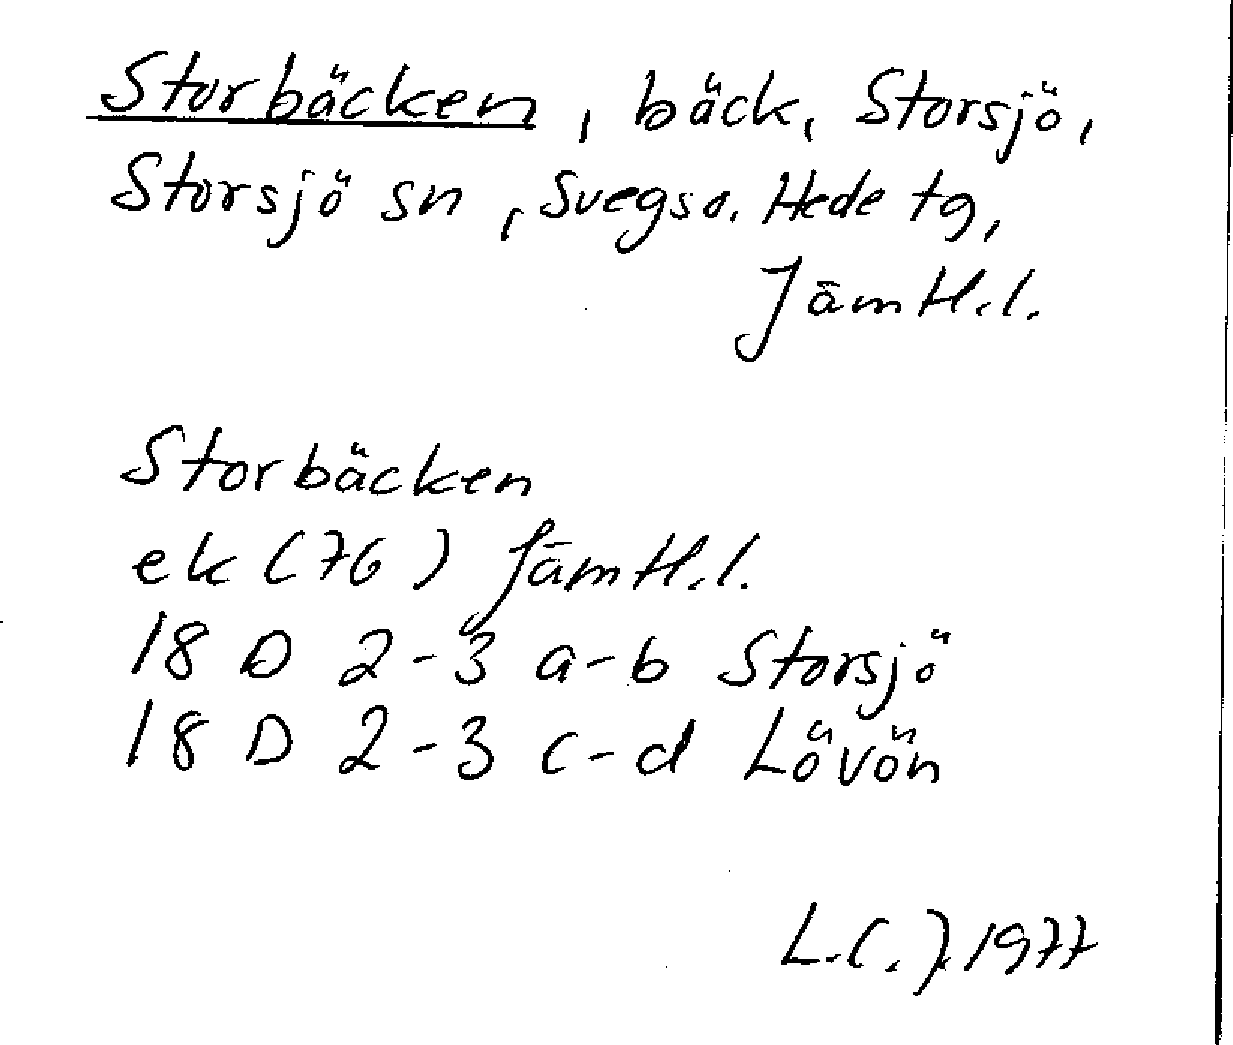 Storbäcken, bäck, Storsjö,
Storsjö sn, Svegs o. Hede tg,
Jämtl.l.
Storbäcken
ek (76) Jämtl.l.
18 D 2-3 a-b Storsjö
18 D 2-3 c-d Lövön
L.C.J. 1977